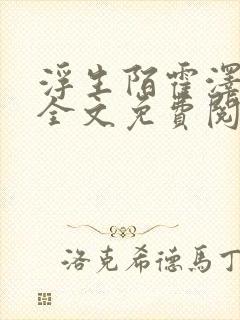 浮生陌霍澤
全文免費閱
洛克希德馬丁